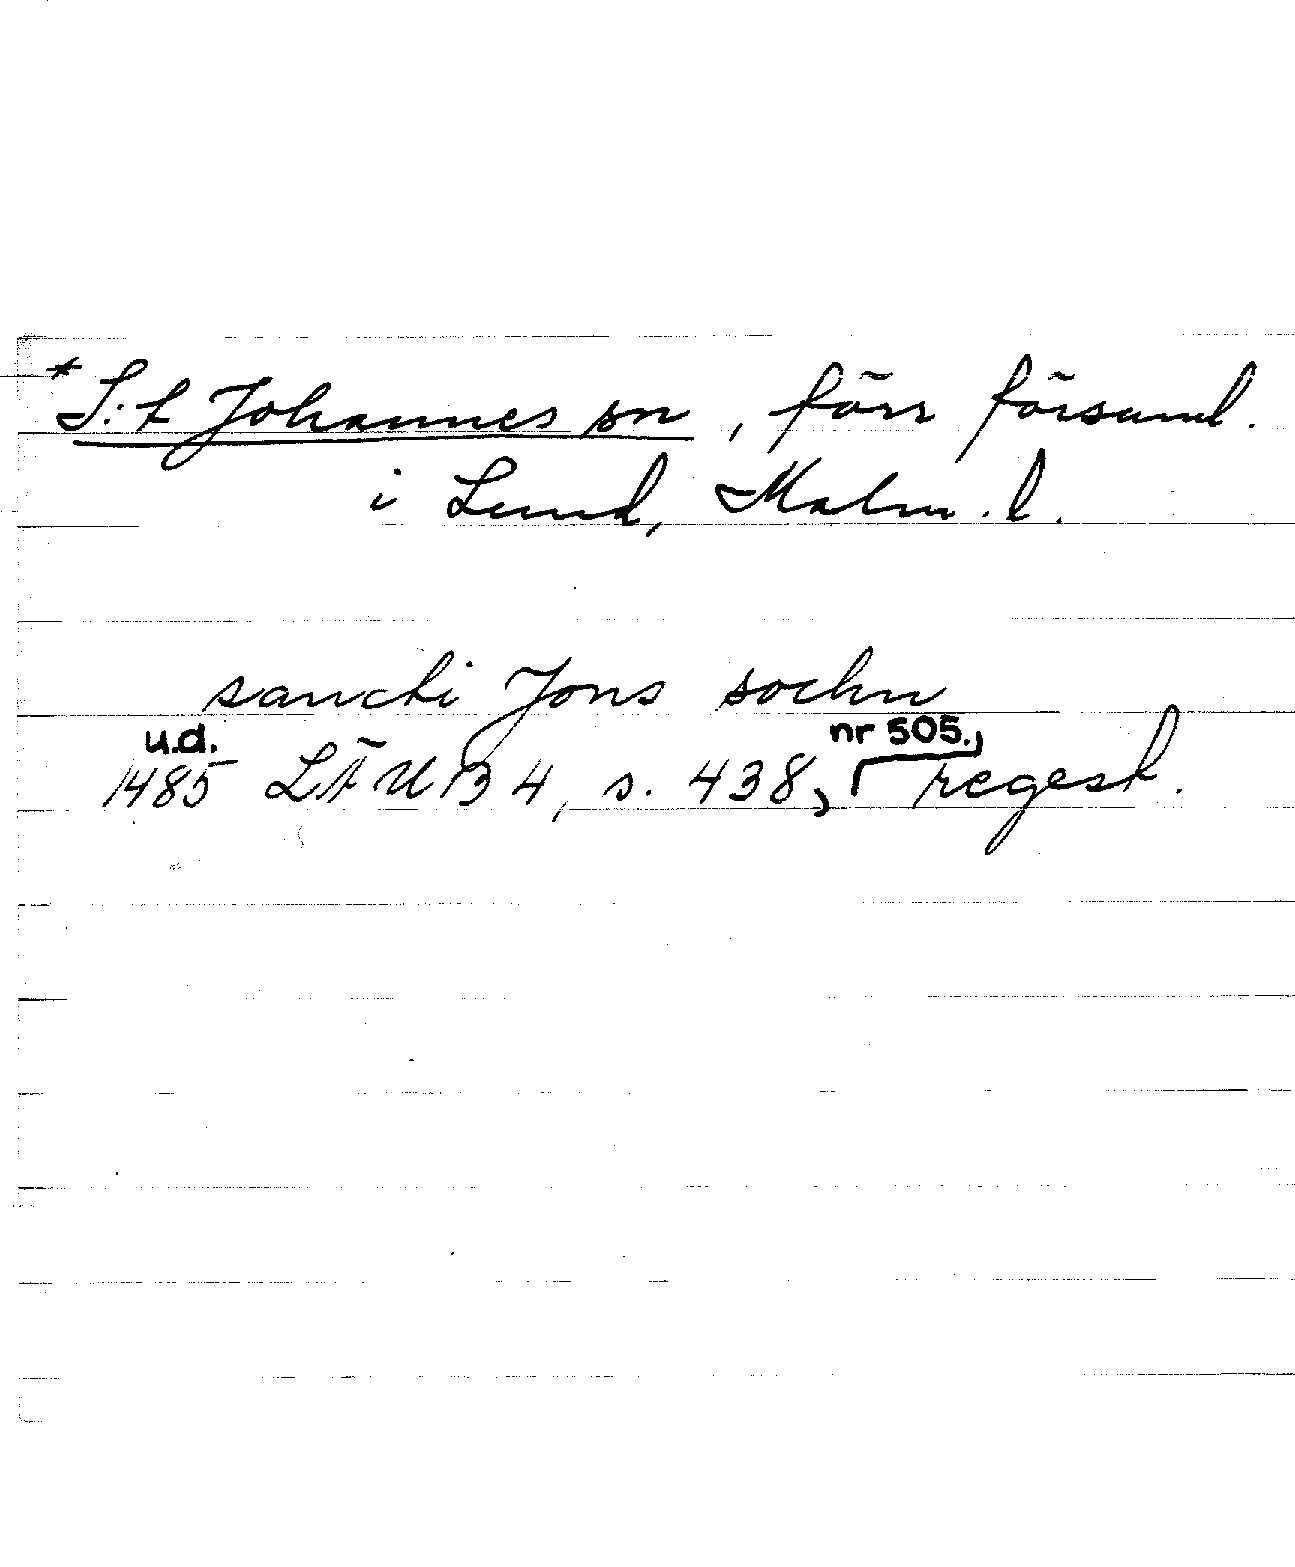 * S:t Johannes sn, förr församl.
i Lund, Malm. l.
sancti Jons sochn
u.d. nr 505.,
1485 LÄUB 4, s. 438, regest.